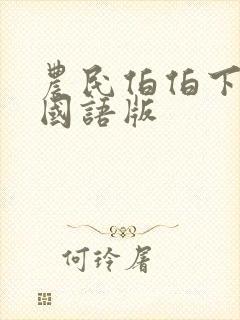 農民伯伯下
國語版
何玲屠